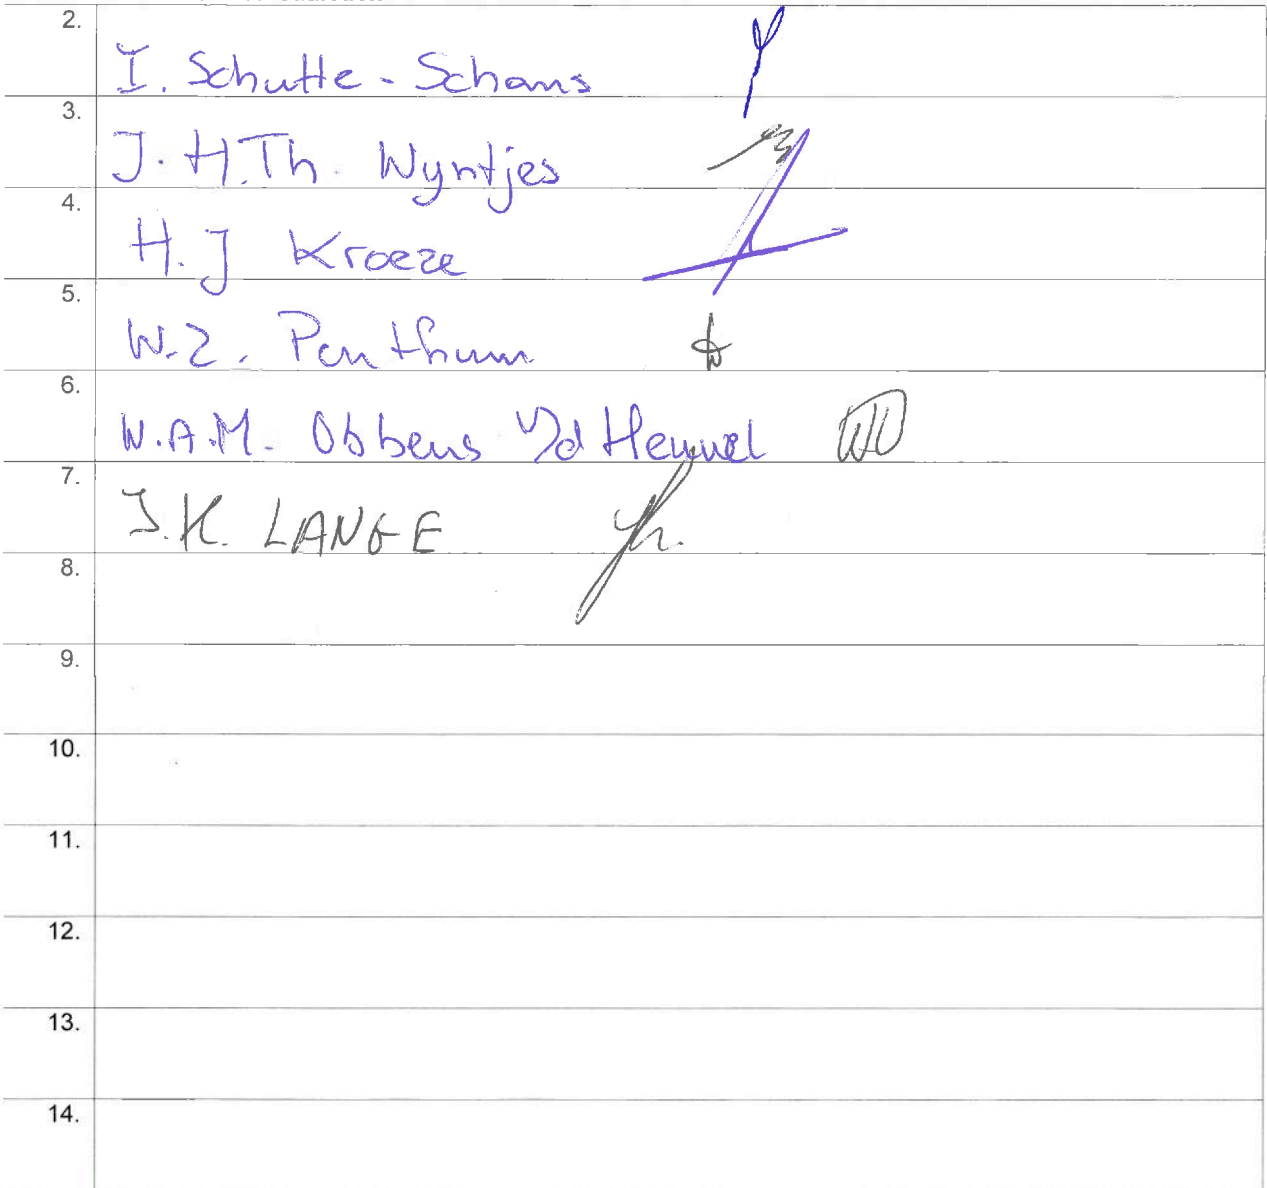 2. I. Schutte - Schans
3. J. H.Th. Wyntjes
4. H. J Kroeze
5. W.Z. Penthum
6. W.A.M. Obbens v/d Heuvel
7. J.K. LANGE
8.
9.
10.
11.
12.
13.
14.